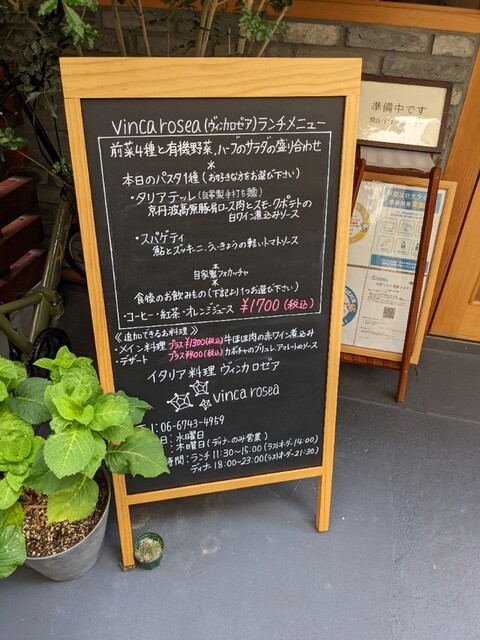 vinca rosea (ヴィンカロゼア) ランチメニュー
前菜4種と有機野菜、ハーブのサラダの盛り合わせ
*
本日のパスタ1種 (お好きな方をお選び下さい)
・タリアテッレ (自家製手打ち麺)
京丹波高原豚肩ロース肉とスモークポテトの
白ワイン煮込みソース
・スパゲティ
鮎とズッキーニ、ういきょうの軽いトマトソース
*
自家製フォカッチャ
*
食後のお飲みもの (下記より1つお選び下さい)
・コーヒー・紅茶・オレンジジュース ¥1700 (税込)
《追加できるお料理》
・メイン料理 プラス¥1300(税込) 牛ほほ肉の赤ワイン煮込み
・デザート プラス¥400(税込) カボチャのブリュレ、アマレットのソース
イタリア料理 ヴィンカ ロゼア
vinca rosea
l:06-6743-4959
日:水曜日
:木曜日(ディナーのみ営業)
時間:ランチ 11:30~15:00 (ラストオーダー14:00)
ディナー 18:00~23:00 (ラストオーダー21:30)
準備中です